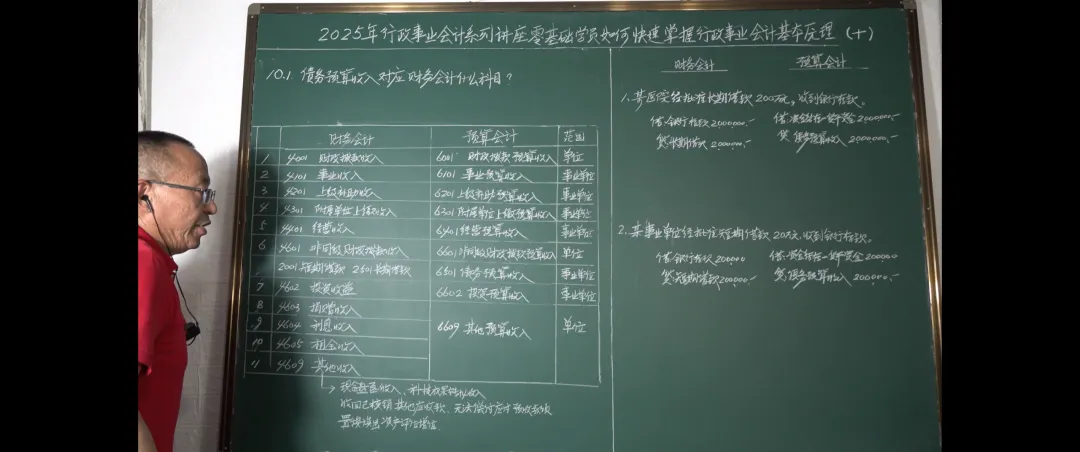 2025年行政事业会计系列讲座零基础学员如何快速掌握行政事业会计基本原理（十）
10.1 债务预算收入对应财务会计什么科目？
财务会计 预算会计 范围
1 4001 财政拨款收入 6001 财政拨款预算收入 单位
2 4101 事业收入 6101 事业预算收入 事业单位
3 4201 上级补助收入 6201 上级补助预算收入 事业单位
4 4301 附属单位上缴收入 6301 附属单位上缴预算收入 事业单位
5 4401 经营收入 6401 经营预算收入 事业单位
6 4601 非同级财政拨款收入 6601 非同级财政拨款预算收入 单位
2001 短期借款 2501 长期借款 6501 债务预算收入 事业单位
7 4602 投资收益 6602 投资预算收入 事业单位
8 4603 捐赠收入
9 4604 利息收入 6609 其他预算收入 单位
10 4605 租金收入
11 4609 其他收入
现金盘盈收入、科技成果转化收入
收回已核销其他应收款、无法偿付应付预收款项
置换换出资产评估增值
财务会计 预算会计
1、某医院经批准长期借款200万元，收到银行存款。
借:银行存款 2000000.- 借:资金结存-货币资金 2000000.-
贷:长期借款 2000000.- 贷:债务预算收入 2000000.-
2.某事业单位经批准短期借款20万元.收到银行存款。
借:银行存款 200000 借:资金结存-货币资金 200000
贷:短期借款 200000.- 贷:债务预算收入 200000.-